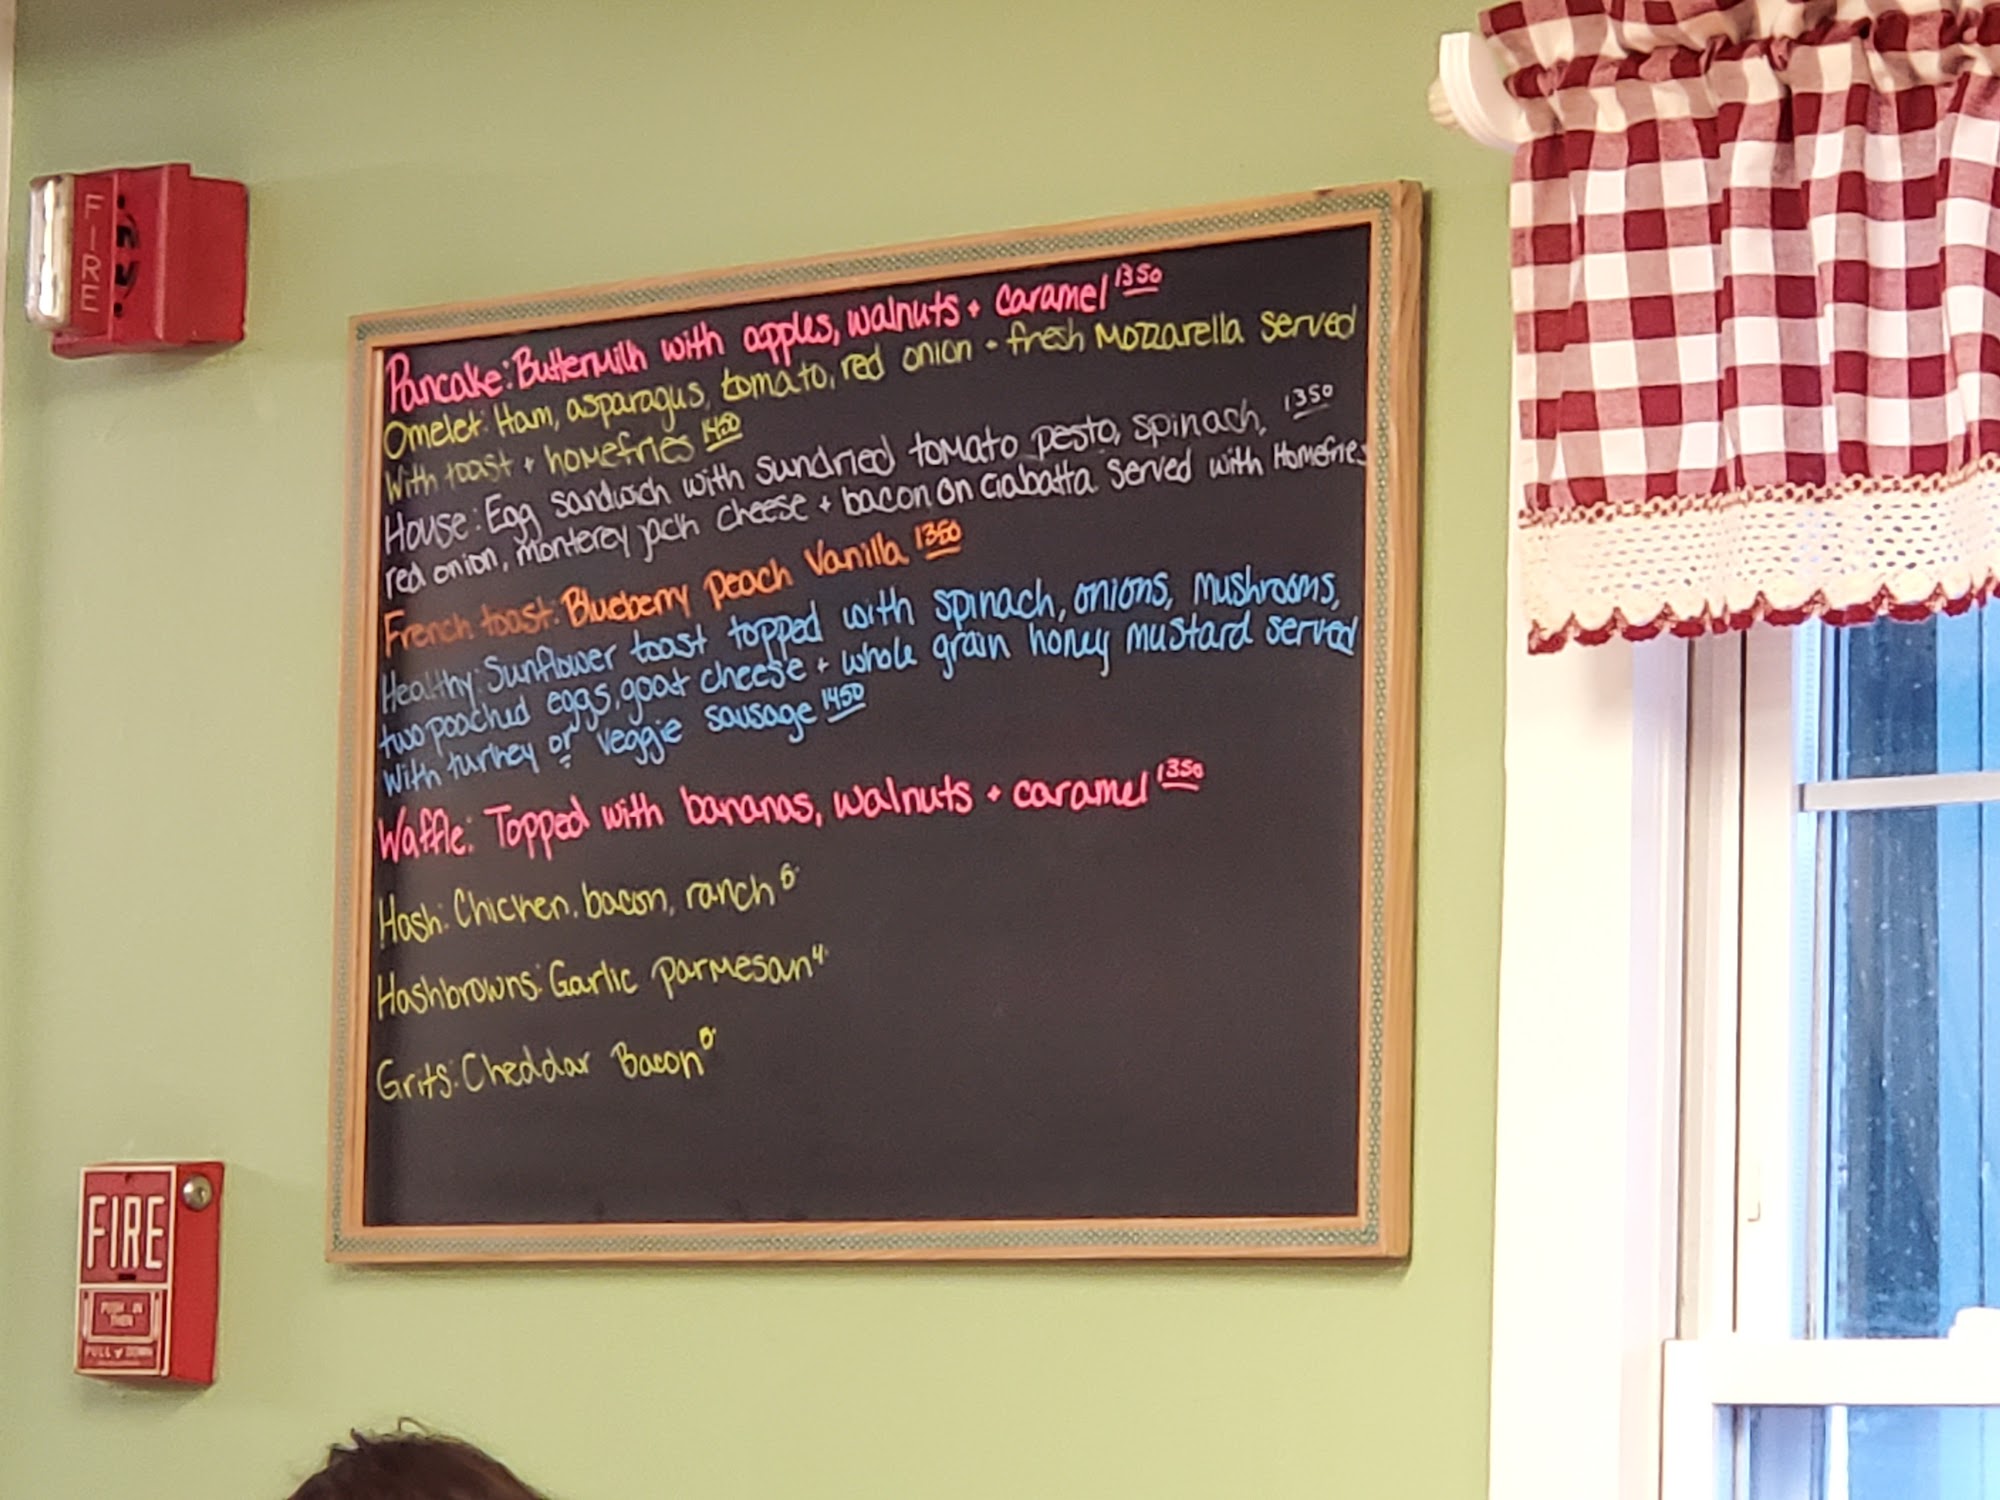 Pancake: Buttermilk with apples, walnuts + caramel 13.50
Omelet: Ham, asparagus, tomato, red onion + fresh mozzarella served
with toast + homefries 14.50
House: Egg sandwich with sundried tomato pesto, spinach, 13.50
red onion, monterey jack cheese + bacon on ciabatta served with Homefries
French toast: Blueberry peach Vanilla 13.50
Healthy: Sunflower toast topped with spinach, onions, mushrooms,
two poached eggs, goat cheese + whole grain honey mustard served
with turkey or veggie sausage 14.50
Waffle: Topped with bananas, walnuts + caramel 13.50
Hash: Chicken, bacon, ranch 5.
Hashbrowns: Garlic parmesan 4.
Grits: Cheddar Bacon 5.
FIRE
FIRE
PUSH IN
THEN
PULL DOWN